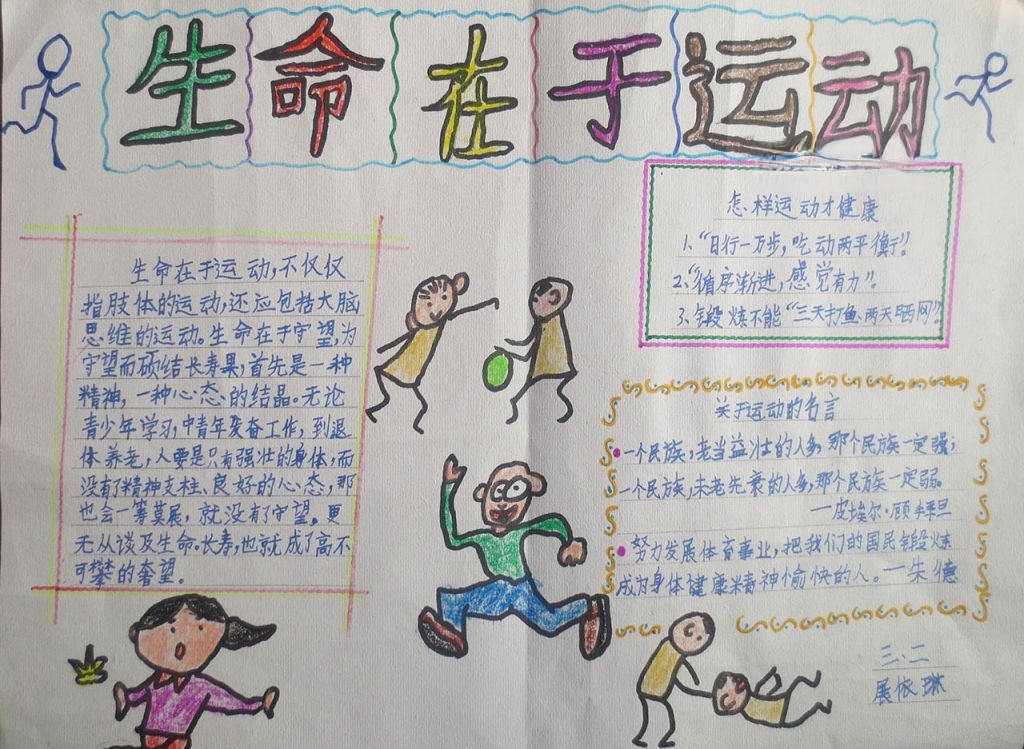 生命在于运动
生命在于运动,不仅仅
指肢体的运动,还应包括大脑
思维的运动。生命在于守望,为
守望而硕结长寿果,首先是一种
精神,一种心态的结晶。无论
青少年学习,中青年发奋工作,到退
休养老,人要是只有强壮的身体,而
没有了精神支柱、良好的心态,那
也会一筹莫展,就没有了守望。更
无从谈及生命·长寿,也就成了高不
可攀的奢望。
怎样运动才健康
1、“日行一万步,吃动两平衡”。
2、“循序渐进,感觉有力”。
3、锻炼不能“三天打鱼、两天晒网”。
关于运动的名言
一个民族,老当益壮的人多,那个民族一定强;
一个民族,未老先衰的人多,那个民族一定弱。
—皮埃尔·顾拜旦
努力发展体育事业,把我们的国民锻炼
成为身体健康精神愉快的人。—朱德
三、二
展依琳